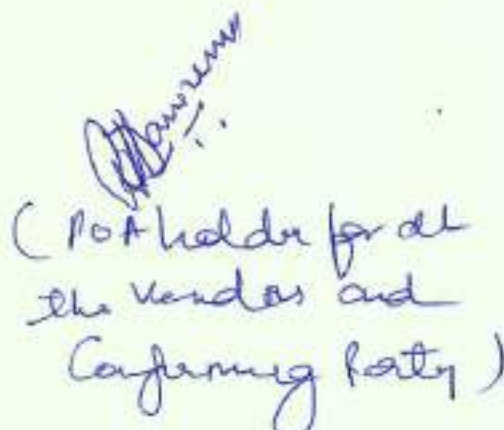 ( POA holder for all
the Vendors and
Confirming Party )